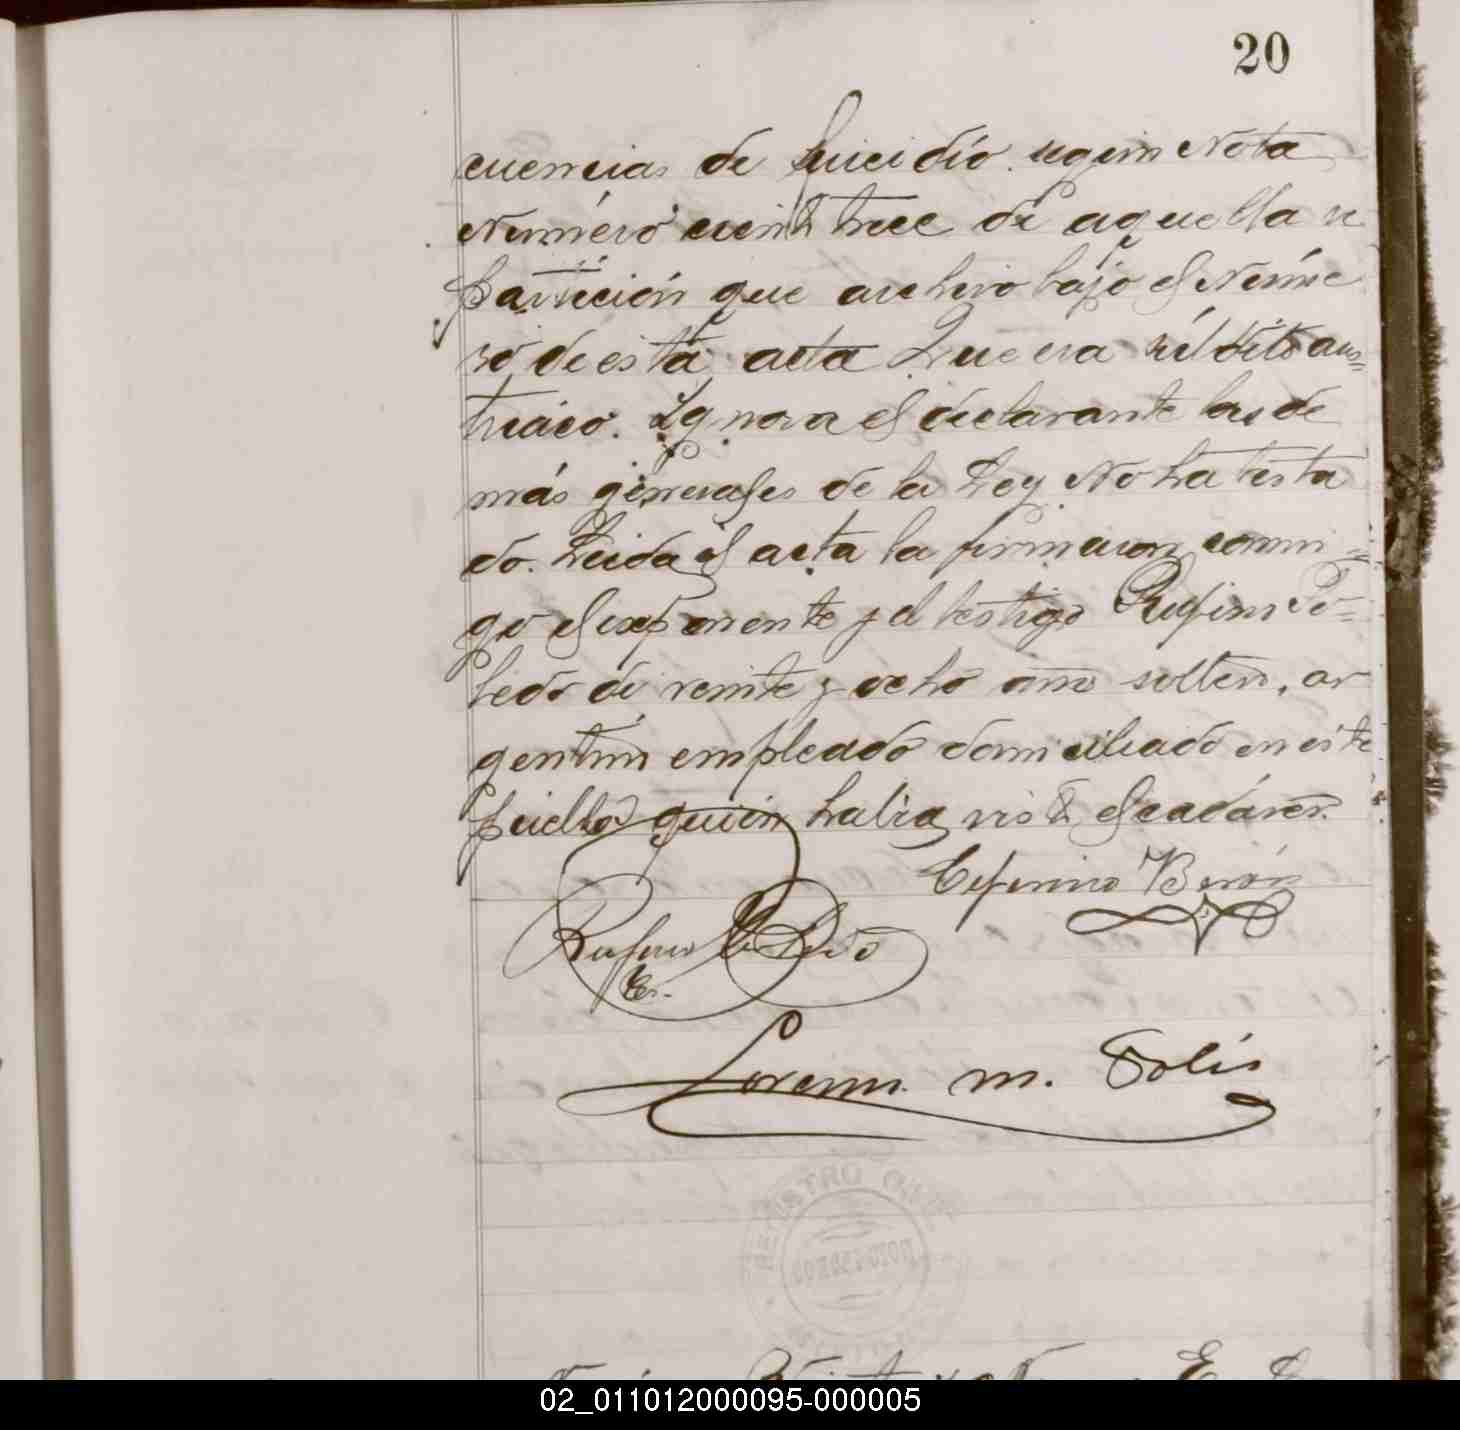 20
cuencias de suicidio segun Nota
Número ciento trece de aquella re
partición que archivo bajo el Núme
ro de esta acta Que era súbdito aus=
triáco. Ignora el declarante las de
más generales de la Ley No ha testa
do. Leida el acta la firmaron conmi=
go el exponente y el testigo Rufino To=
ledo de veinte y ocho años soltero, ar
gentino empleado domiciliado en este
pueblo quién habia visto el cadáver.
Ceferino Berón
Rufino Toledo
Lorenzo M. Solis
REGISTRO CIVIL
02_011012000095-000005